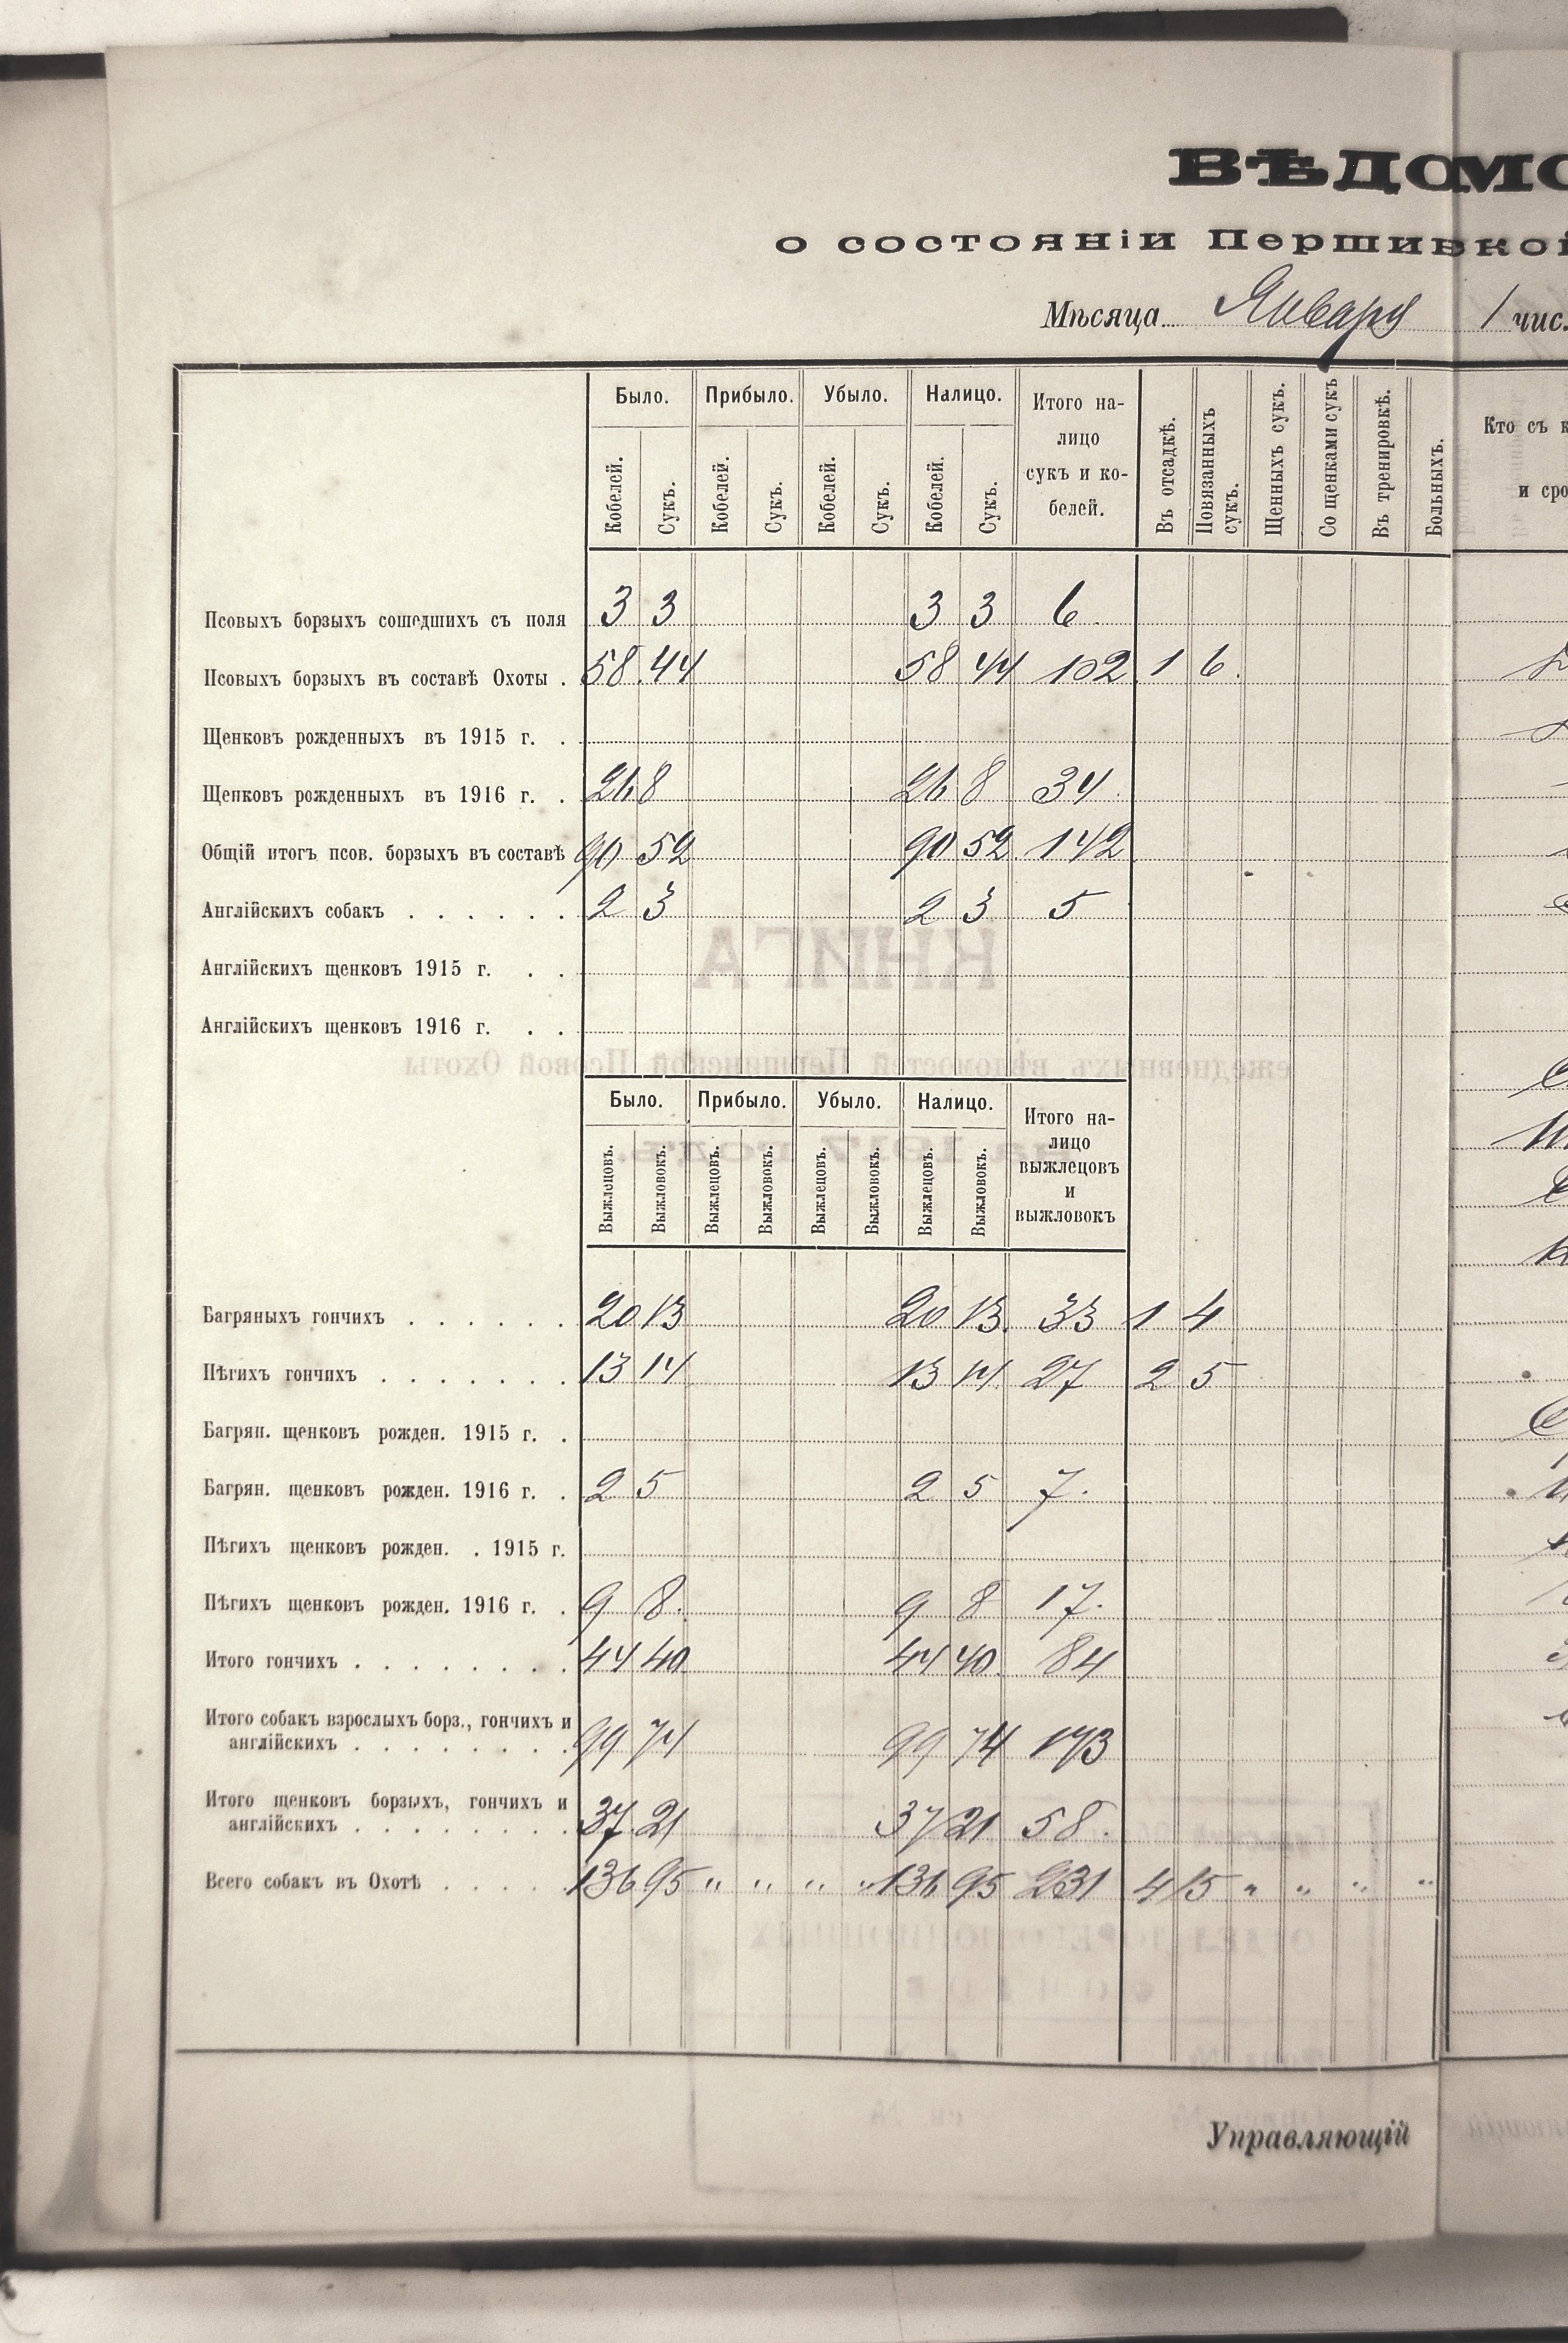 ВѢДОМО
о состояніи Першинской
Мѣсяца Января 1 чис.
Было. Прибыло. Убыло. Налицо. Итого на-
лицо
сукъ и ко-
белей.
Кобелей. Сукъ. Кобелей. Сукъ. Кобелей. Сукъ. Кобелей. Сукъ.
Въ отсадкѣ. Повязанныхъ сукъ. Щенныхъ сукъ. Со щенками сукъ Въ тренировкѣ. Больныхъ.
Кто съ к
и сро
Псовыхъ борзыхъ сошедшихъ съ поля 3 3 3 3 6
Псовыхъ борзыхъ въ составѣ Охоты . 58 44 58 44 102 1 6
Щенковъ рожденныхъ въ 1915 г. .
Щенковъ рожденныхъ въ 1916 г. . 26 8 26 8 34
Общій итогъ псов. борзыхъ въ составѣ 90 52 90 52 142
Англійскихъ собакъ . . . . . . 2 3 2 3 5
Англійскихъ щенковъ 1915 г. . .
Англійскихъ щенковъ 1916 г. . .
КНИГА
ежедневныхъ вѣдомостей Першинской Псовой Охоты
на 1917 годъ.
Было. Прибыло. Убыло. Налицо. Итого на-
лицо
выжлецовъ
и
выжловокъ
Выжлецовъ. Выжловокъ. Выжлецовъ. Выжловокъ. Выжлецовъ. Выжловокъ. Выжлецовъ. Выжловокъ.
Багряныхъ гончихъ . . . . . . 20 13 20 13 33 1 4
Пѣгихъ гончихъ . . . . . . . 13 14 13 14 27 2 5
Багрян. щенковъ рожден. 1915 г. .
Багрян. щенковъ рожден. 1916 г. . 2 5 2 5 7.
Пѣгихъ щенковъ рожден. . 1915 г.
Пѣгихъ щенковъ рожден. 1916 г. . 9 8. 9 8 17.
Итого гончихъ . . . . . . . . 44 40 44 40 84
Итого собакъ взрослыхъ борз., гончихъ и
англійскихъ . . . . . . . . 99 74 99 74 173
Итого щенковъ борзыхъ, гончихъ и
англійскихъ . . . . . . . . 37 21 37 21 58.
Всего собакъ въ Охотѣ . . . . . 136 95 „ „ „ „ 136 95 231 4 15 „ „ „ „
Управляющій